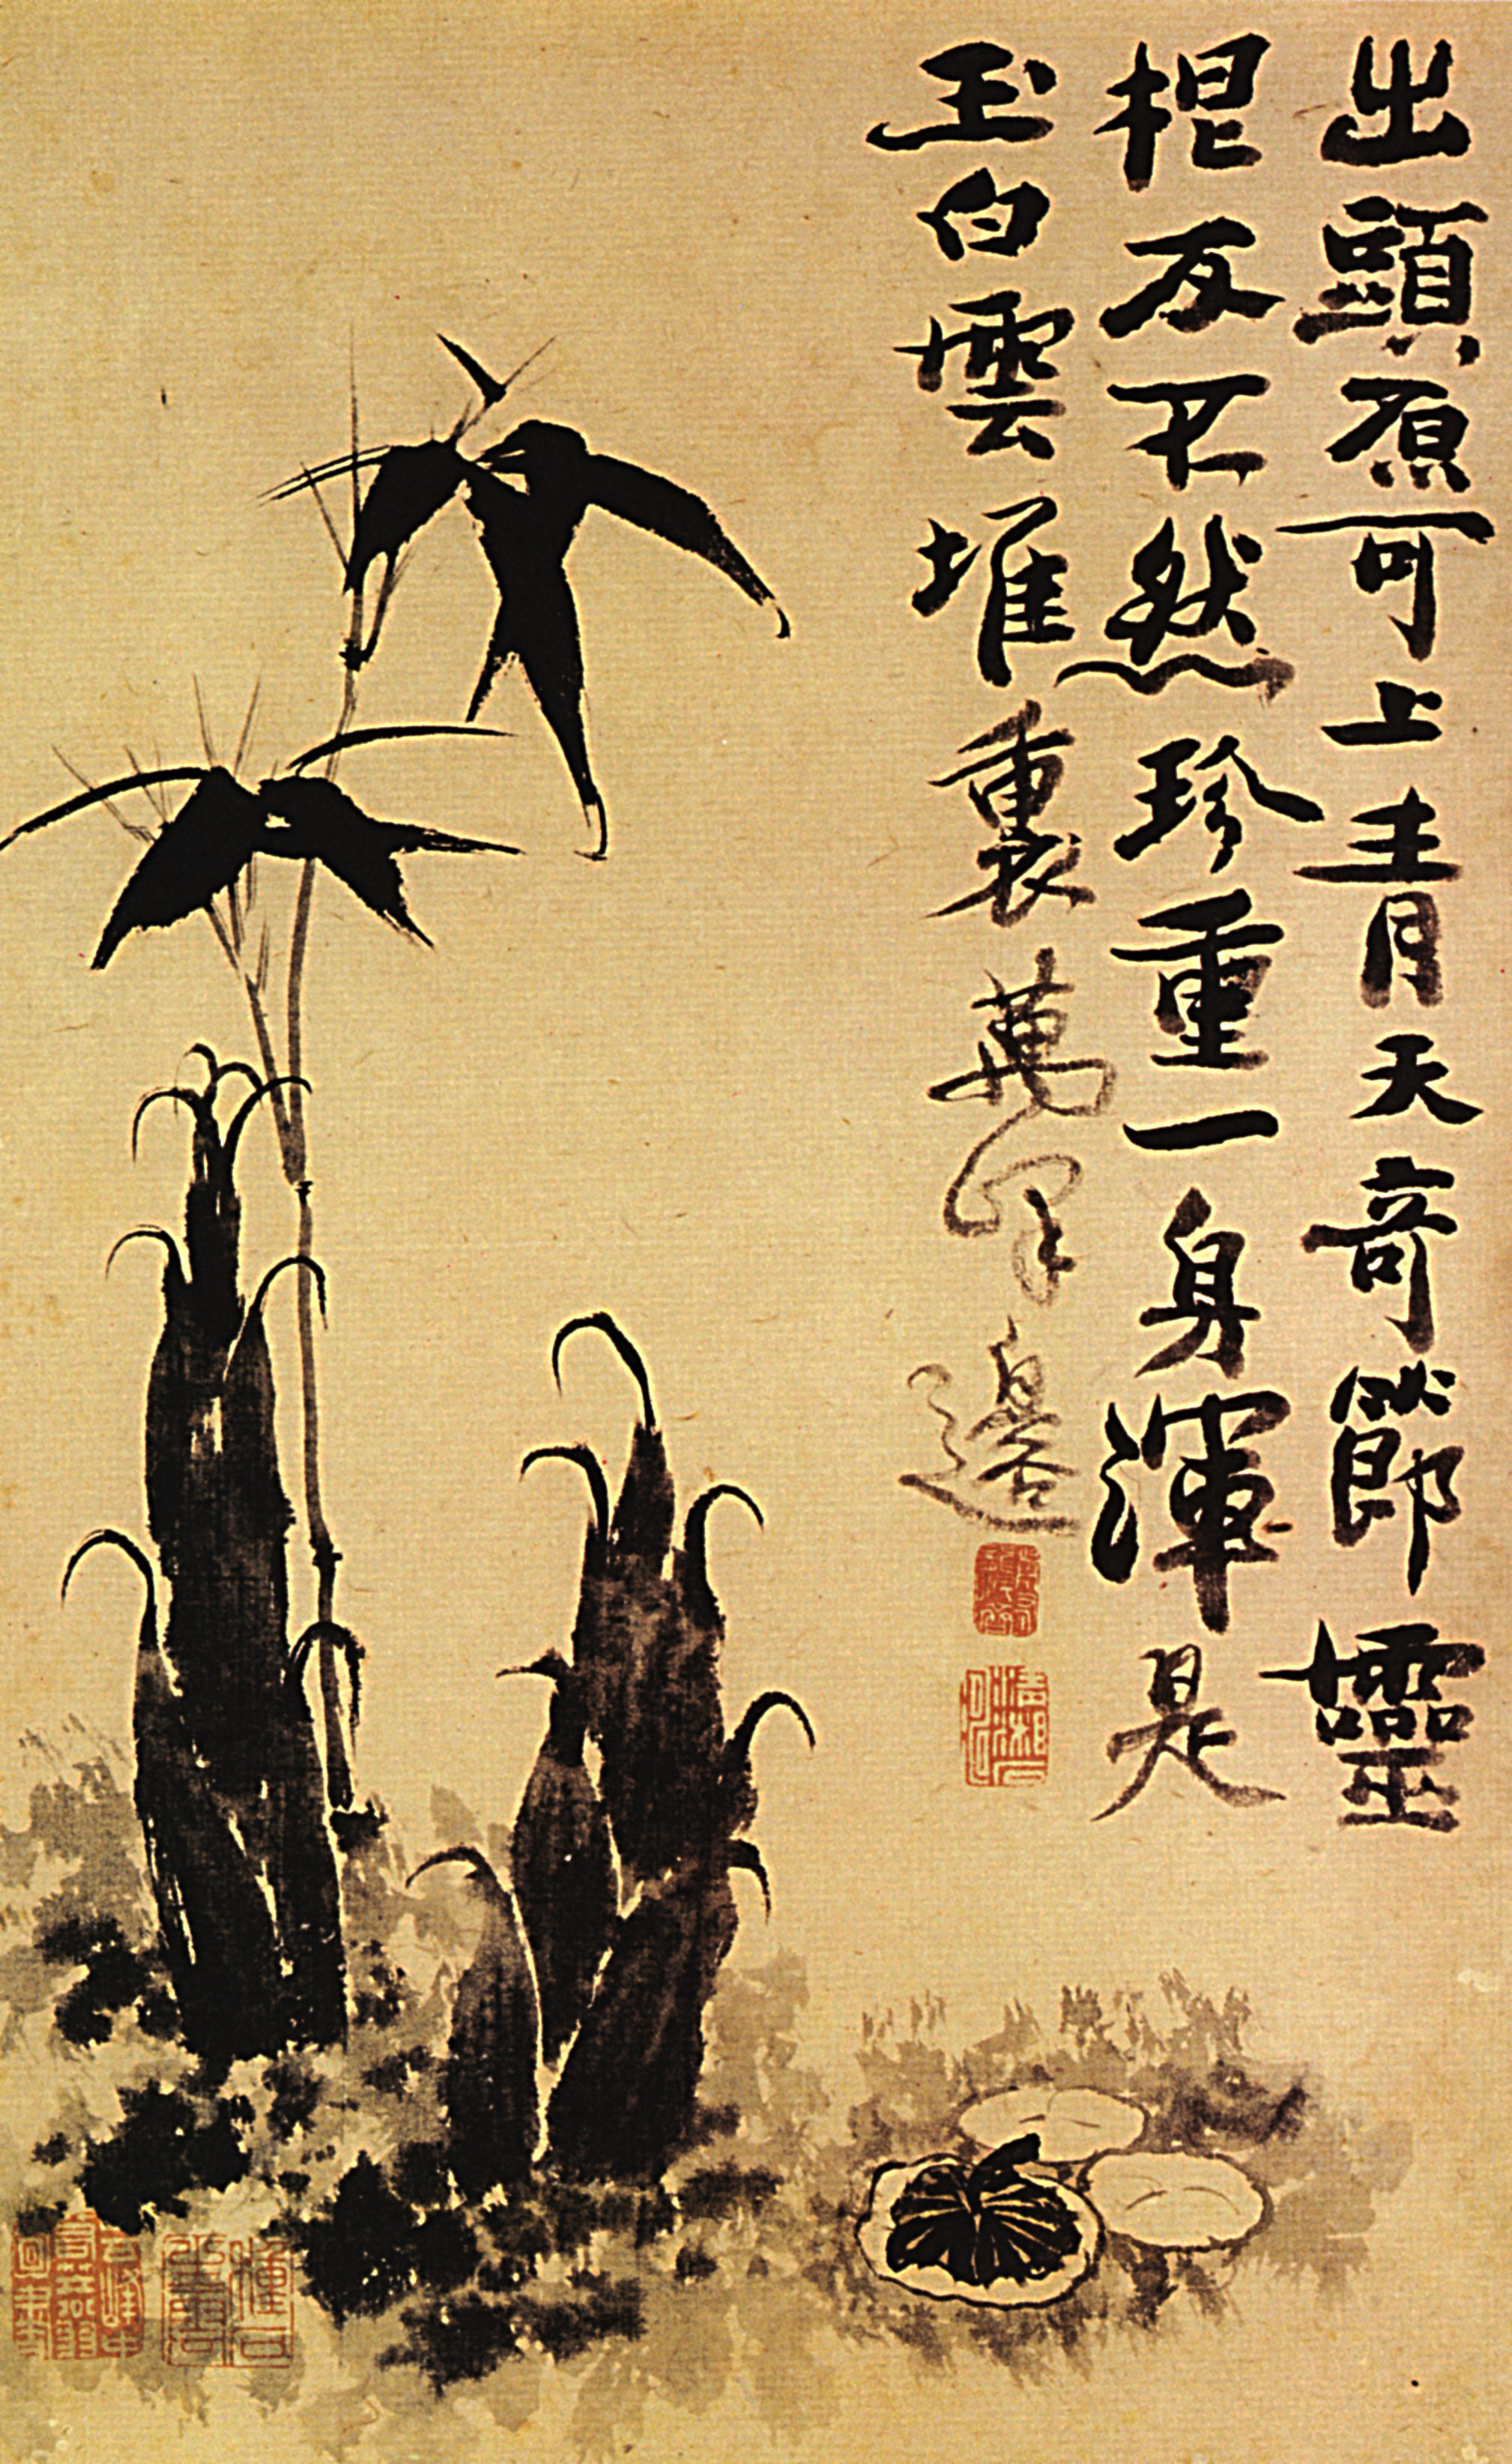 出頭原可上青天奇節靈
根反不然珍重一身渾是
玉白雲堆裏萬邊